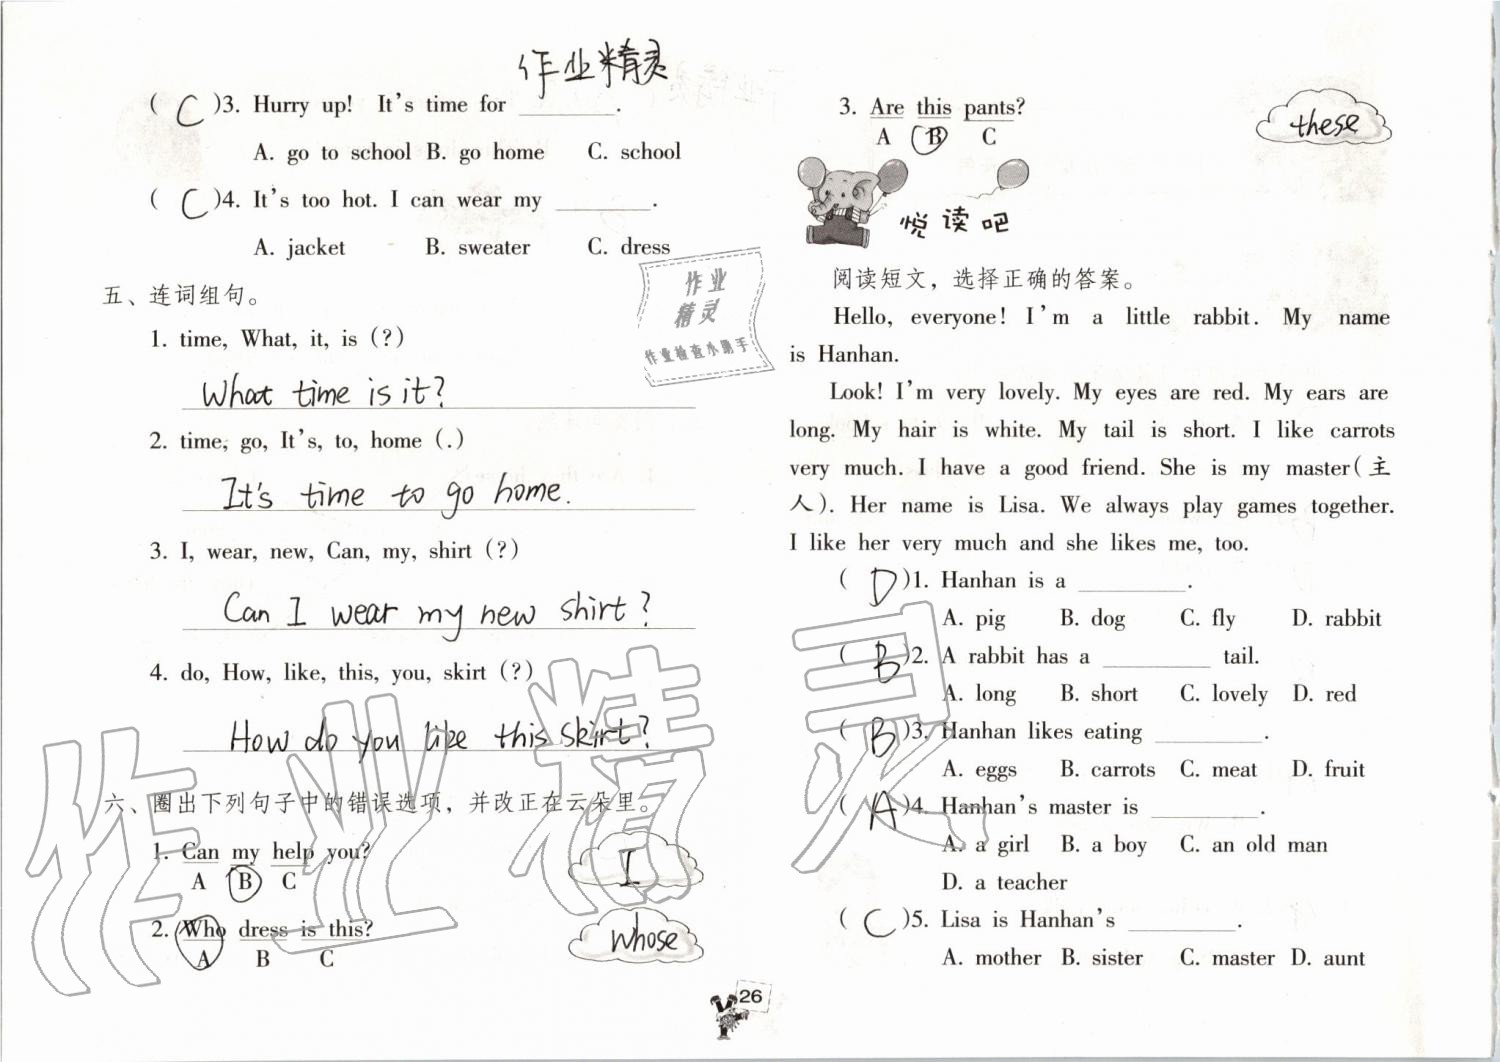 作业精灵
( C )3. Hurry up! It's time for ________.
A. go to school B. go home C. school
( C )4. It's too hot. I can wear my ________.
A. jacket B. sweater C. dress
作业
精灵
作业检查小助手
五、连词组句。
1. time, What, it, is (?)
What time is it?
2. time, go, It's, to, home (.)
It's time to go home.
3. I, wear, new, Can, my, shirt (?)
Can I wear my new shirt?
4. do, How, like, this, you, skirt (?)
How do you like this skirt?
六、圈出下列句子中的错误选项，并改正在云朵里。
1. Can my help you?
A B C
I
2. Who dress is this?
A B C
whose
26
3. Are this pants?
A B C
these
悦读吧
阅读短文，选择正确的答案。
Hello, everyone! I'm a little rabbit. My name
is Hanhan.
Look! I'm very lovely. My eyes are red. My ears are
long. My hair is white. My tail is short. I like carrots
very much. I have a good friend. She is my master(主
人). Her name is Lisa. We always play games together.
I like her very much and she likes me, too.
( D )1. Hanhan is a ________.
A. pig B. dog C. fly D. rabbit
( B )2. A rabbit has a ________ tail.
A. long B. short C. lovely D. red
( B )3. Hanhan likes eating ________.
A. eggs B. carrots C. meat D. fruit
( A )4. Hanhan's master is ________.
A. a girl B. a boy C. an old man
D. a teacher
( C )5. Lisa is Hanhan's ________.
A. mother B. sister C. master D. aunt
作业精灵